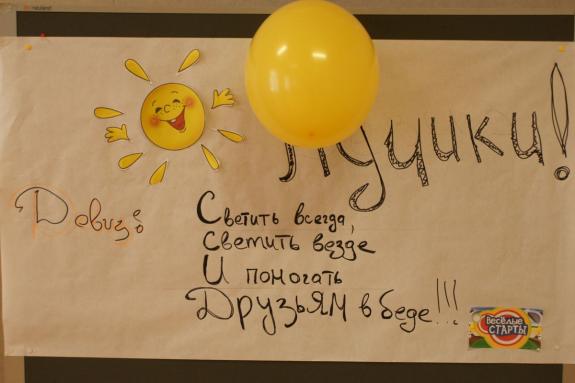 Лучики!
Девиз:
Светить всегда,
светить везде
И помогать
Друзьям в беде!!!
Весёлые
СТАРТЫ